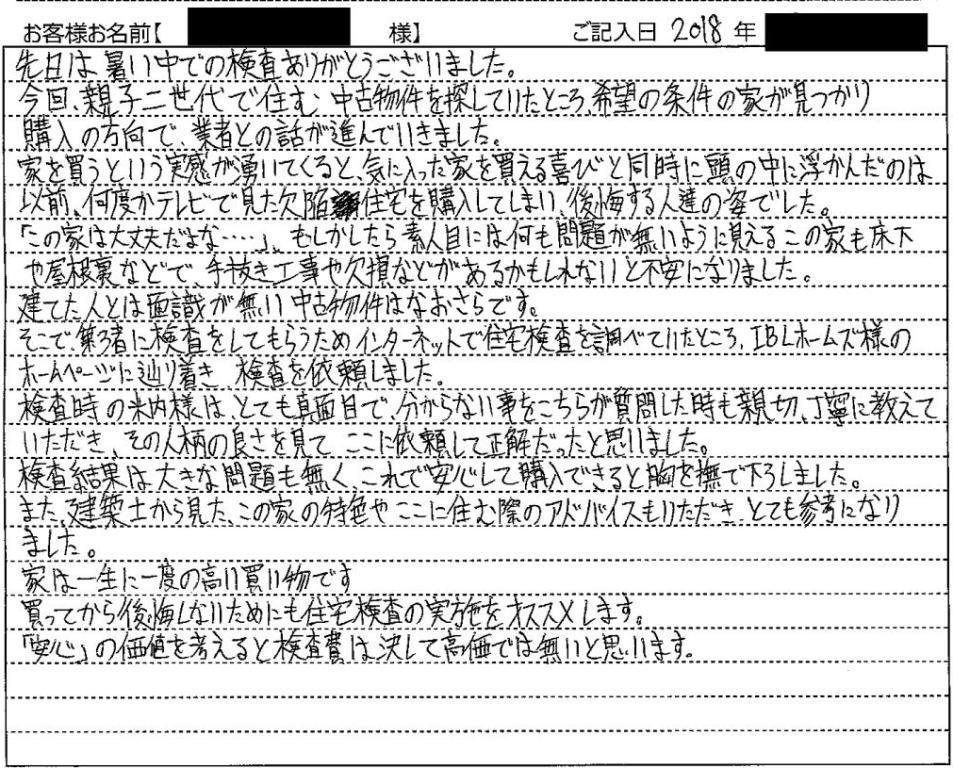 お客様お名前【 様】 ご記入日 2018 年
先日は暑い中での検査ありがとうございました。
今回、親子二世代で住む中古物件を探していたところ、希望の条件の家が見つかり
購入の方向で、業者との話が進んでいきました。
家を買うという実感が湧いてくると、気に入った家を買える喜びと同時に頭の中に浮かんだのは
以前、何度かテレビで見た欠陥住宅を購入してしまい、後悔する人達の姿でした。
「この家は大丈夫だよな……」、もしかしたら素人目には何も問題が無いように見えるこの家も床下
や屋根裏などで、手抜き工事や欠損などがあるかもしれないと不安になりました。
建てた人とは面識が無い中古物件はなおさらです。
そこで、第3者に検査をしてもらうためインターネットで住宅検査を調べていたところ、IBLホームズ様の
ホームページに辿り着き 検査を依頼しました。
検査時の米内様は、とても真面目で、分からない事をこちらが質問した時も親切、丁寧に教えて
いただき、その人柄の良さを見て ここに依頼して正解だったと思いました。
検査結果は大きな問題も無く、これで安心して購入できると胸を撫で下ろしました。
また、建築士から見た、この家の特色や ここに住む際のアドバイスもいただき、とても参考になり
ました。
家は一生に一度の高い買い物です
買ってから後悔しないためにも住宅検査の実施をオススメします。
「安心」の価値を考えると検査費は決して高価では無いと思います。